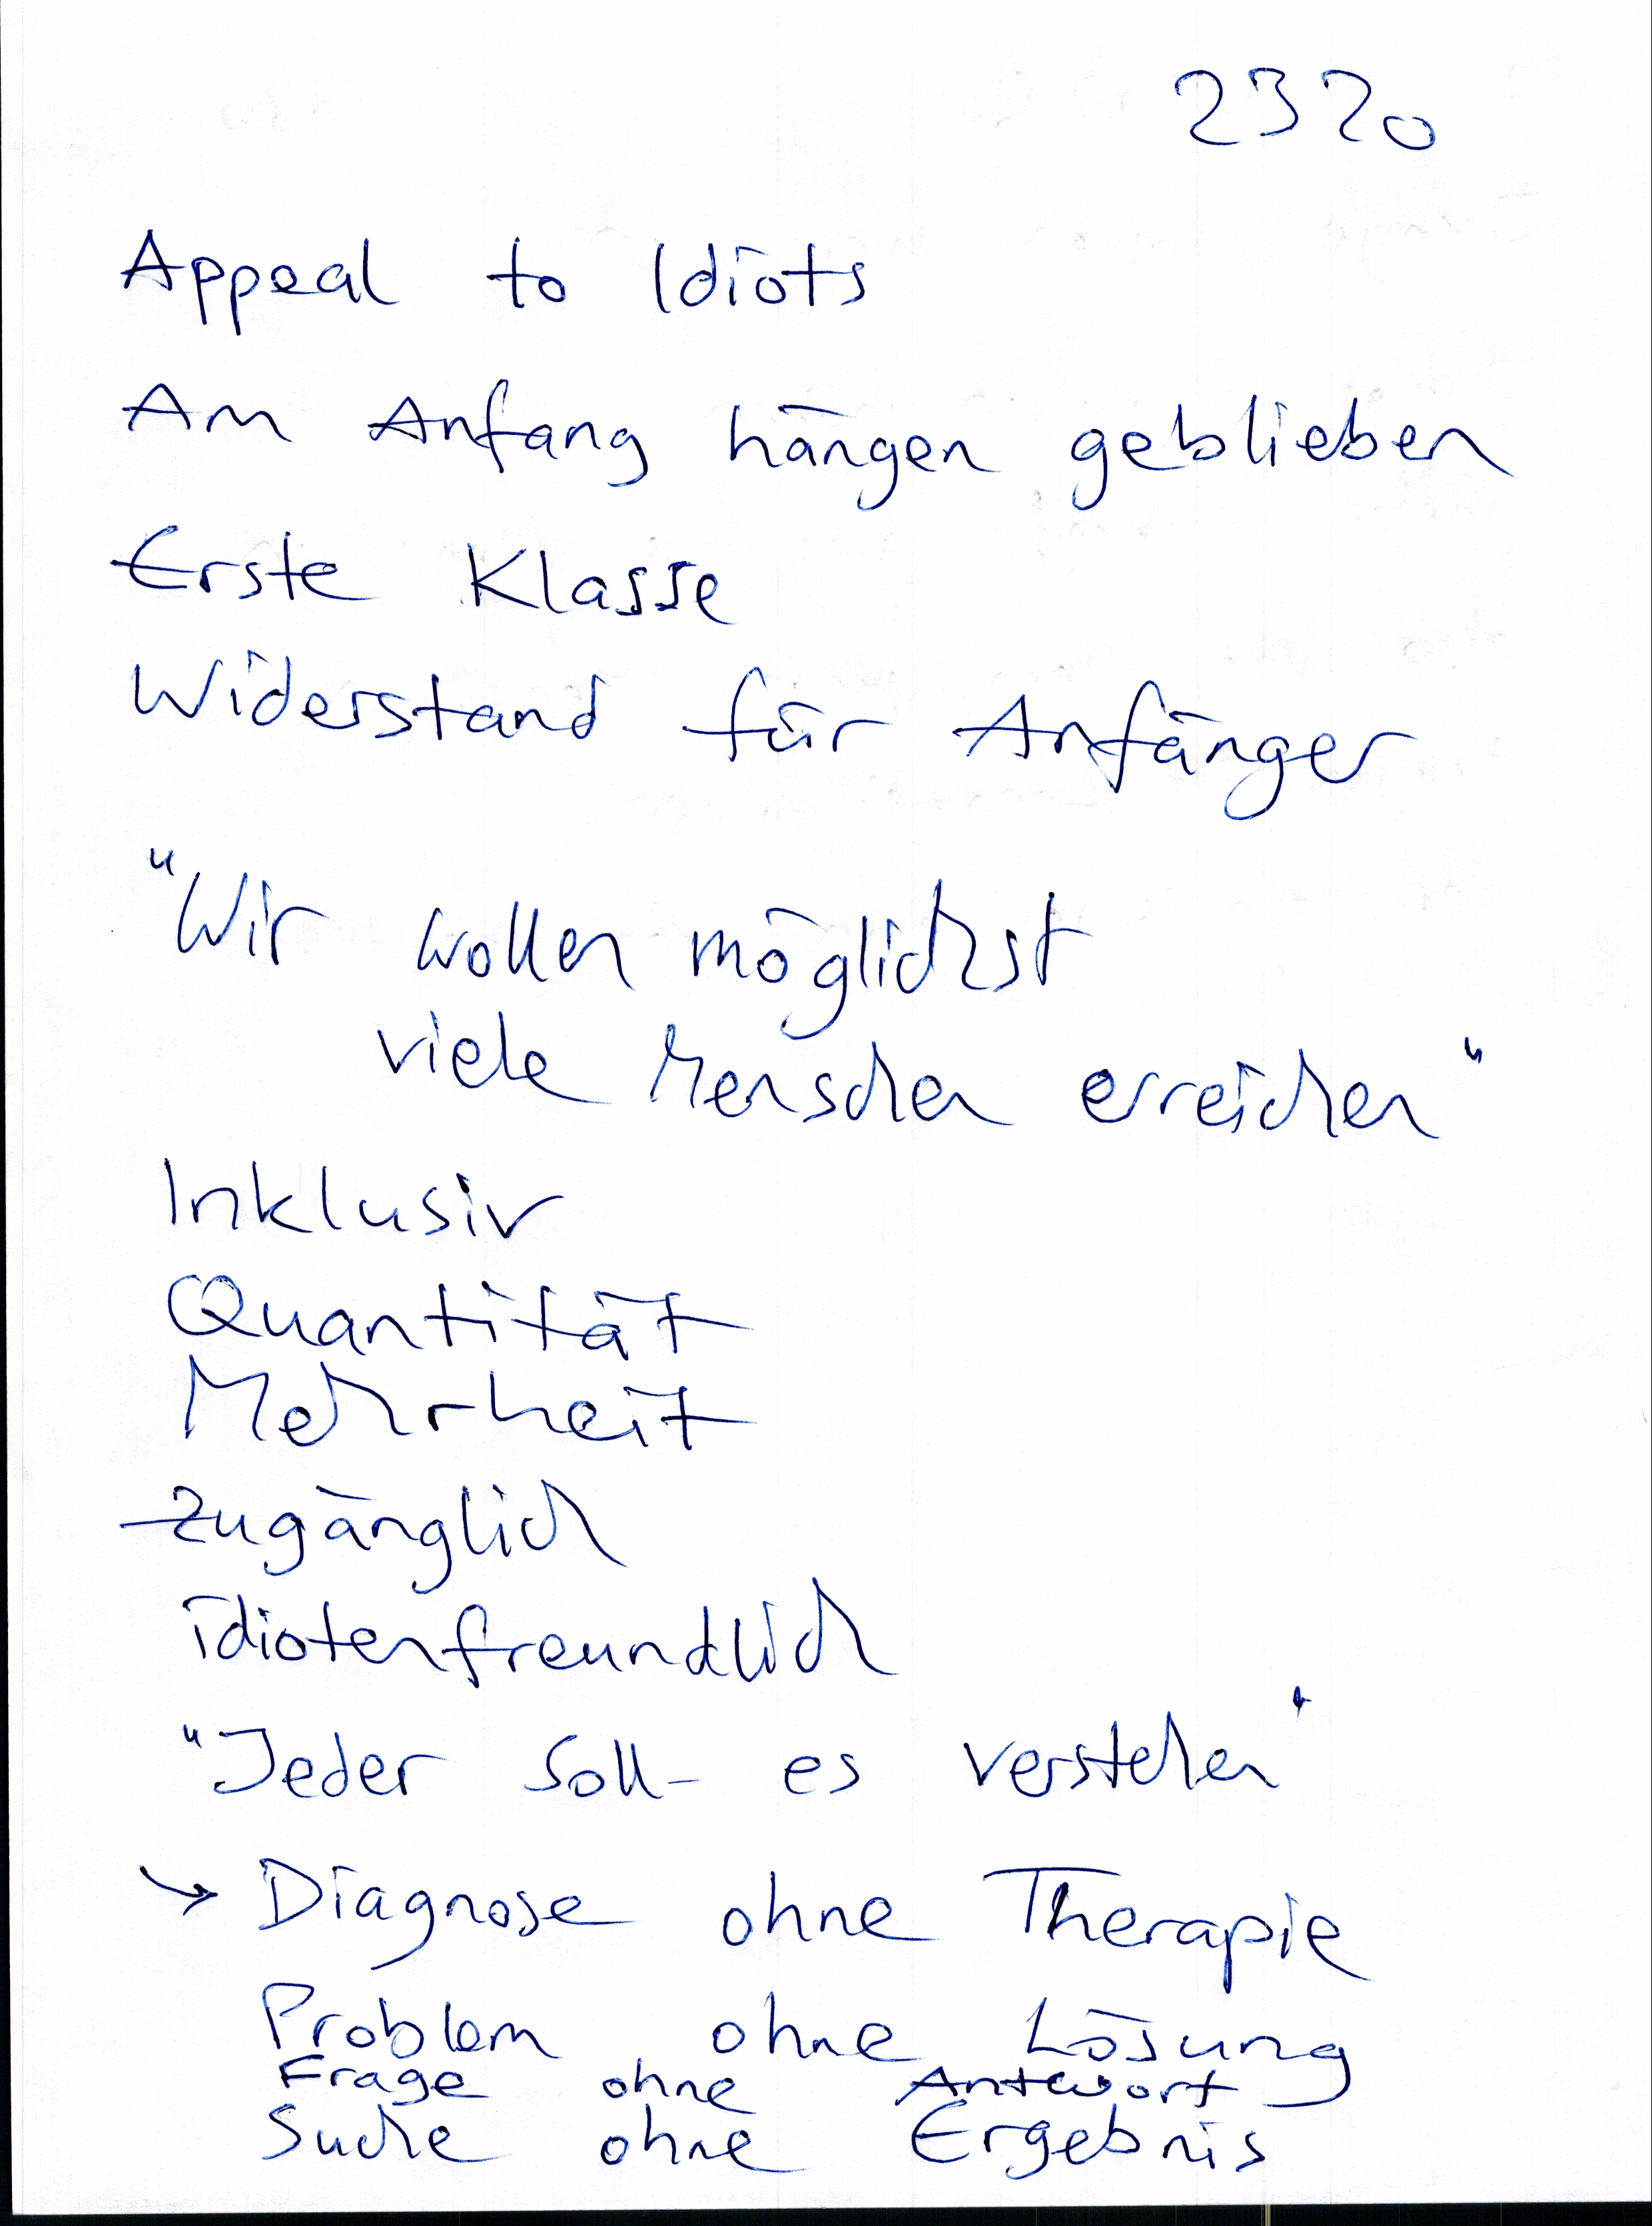 2320
Appeal to Idiots
Am Anfang hängen geblieben
Erste Klasse
Widerstand für Anfänger
"Wir wollen möglichst
viele Menschen erreichen"
Inklusiv
Quantität
Mehrheit
Zugänglich
idiotenfreundlich
"Jeder soll es verstehen"
→ Diagnose ohne Therapie
Problem ohne Lösung
Frage ohne Antwort
Suche ohne Ergebnis